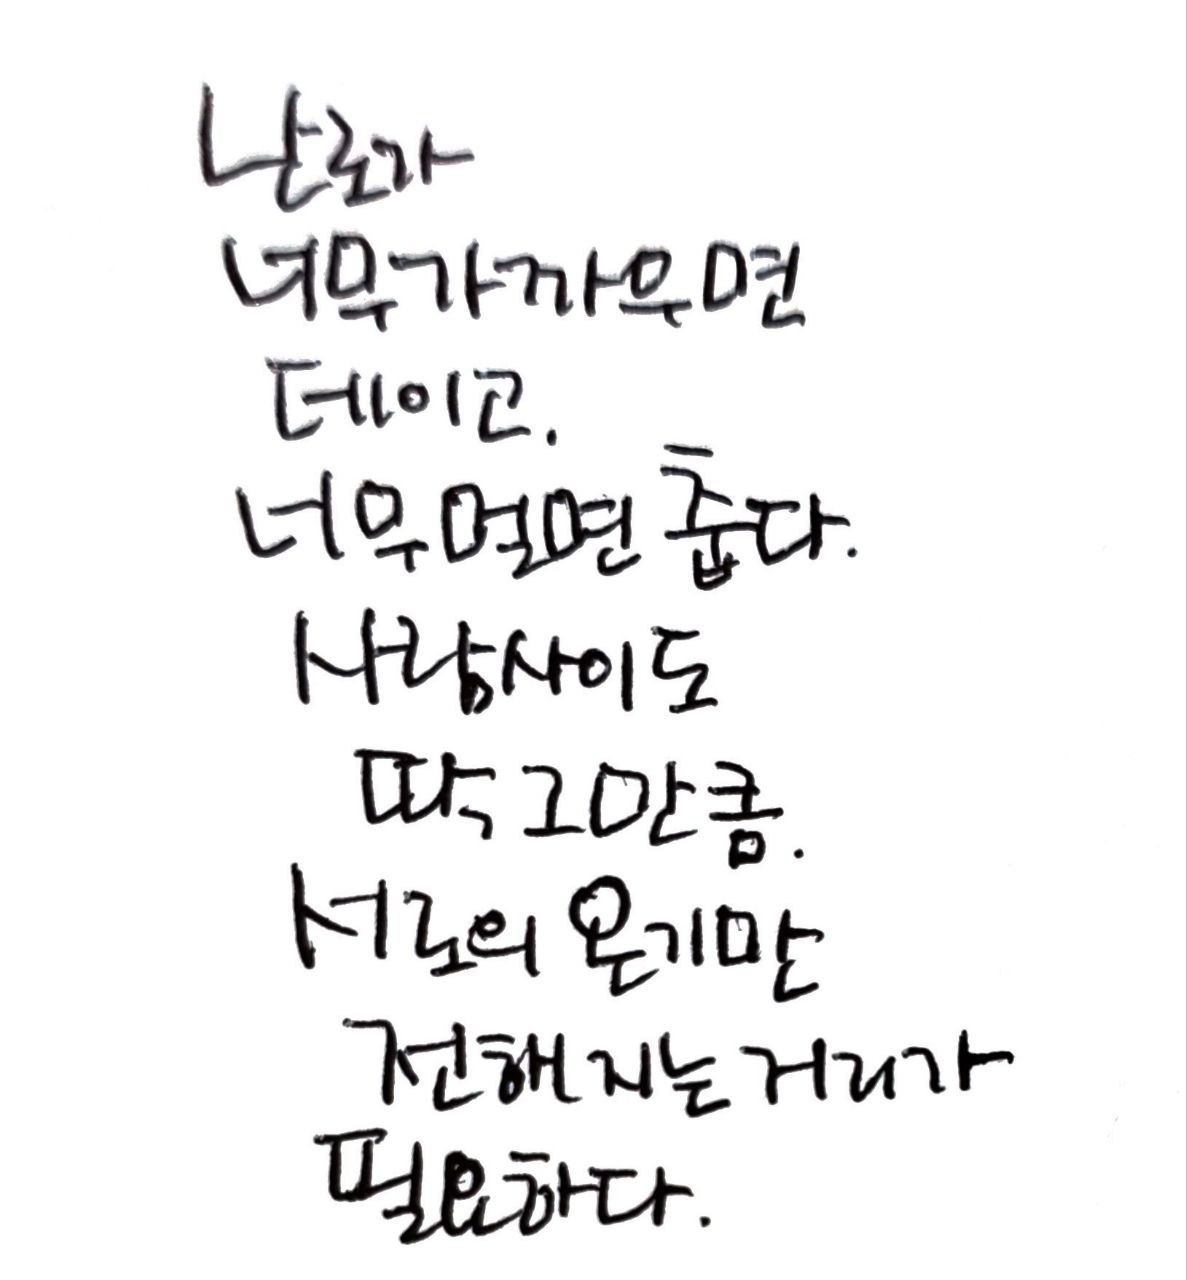 난로가
너무 가까우면
데이고.
너무 멀면 춥다.
사람 사이도
딱 그만큼.
서로의 온기만
전해지는 거리가
필요하다.